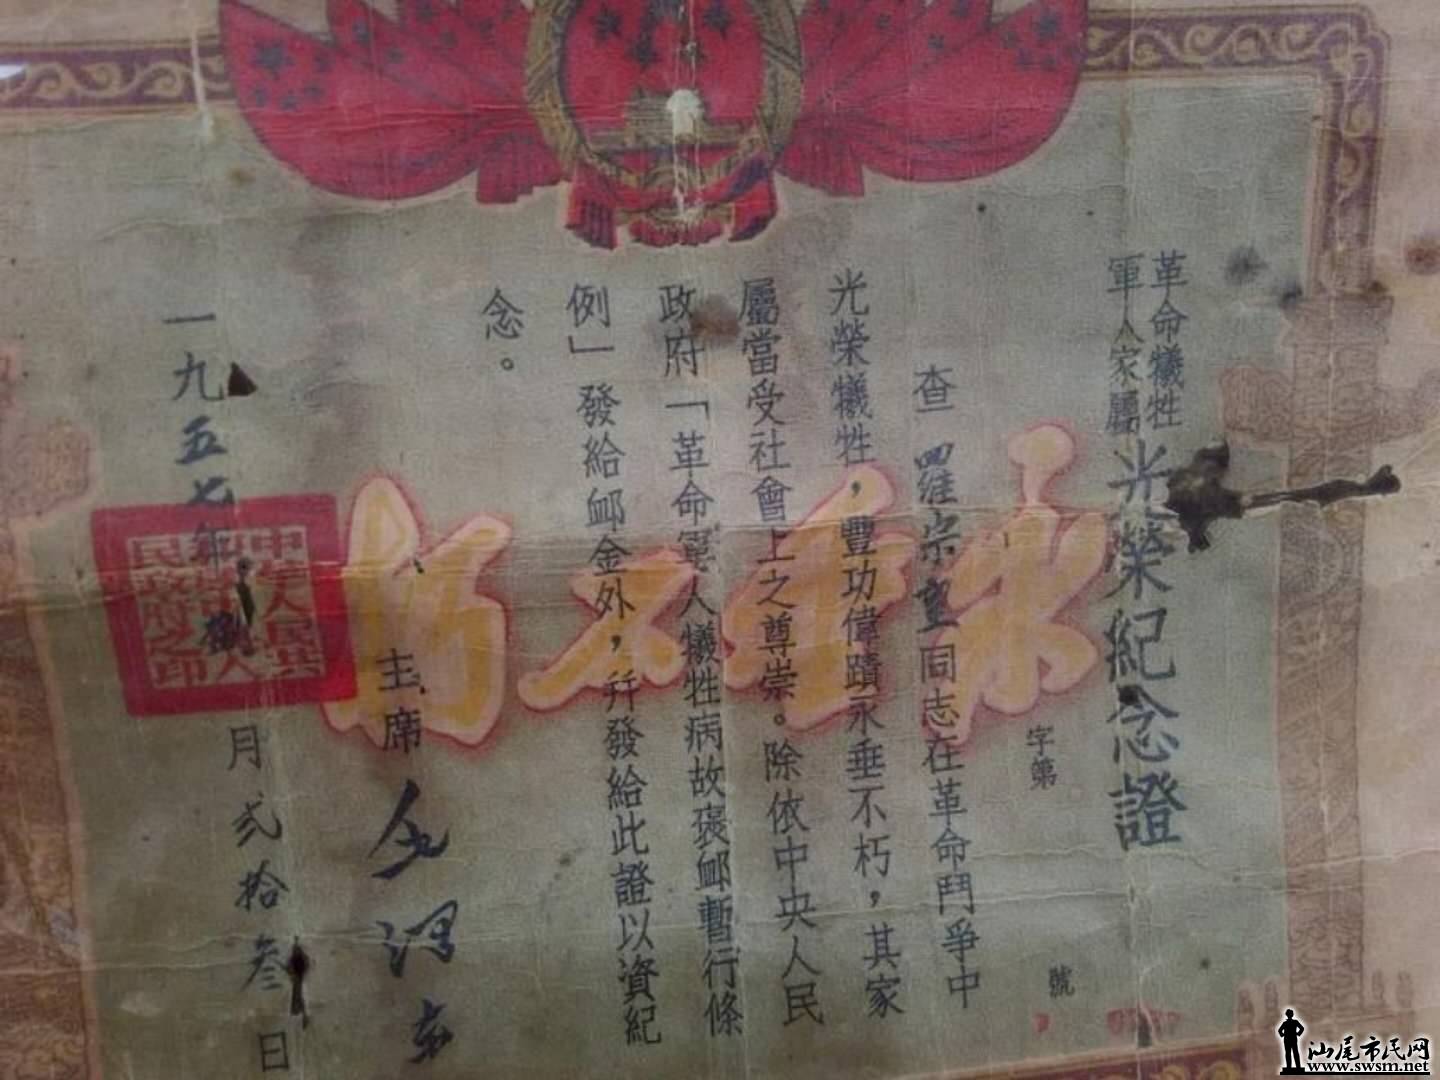 革命犧牲
軍人家屬
光榮紀念證
字第 號
查 羅宗重 同志在革命鬥爭中
光榮犧牲，豐功偉蹟永垂不朽，其家
屬當受社會上之尊崇。除依中央人民
政府「革命軍人犧牲病故褒卹暫行條
例」發給卹金外，幷發給此證以資紀
念。
主席 毛澤東
一九五七年 月弍拾叁日
永垂不朽
中華人民共
和國中央人
民政府之印
汕尾市民网
www.swsm.net